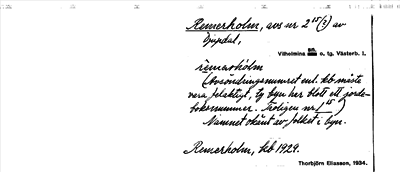 Remerholm, avs ur 2 15(?) av
Djupdal,
Vilhelmina sn o. tg. Västerb. l.
remərhòlm
(Avsöndringsnumret enl. kb måste
vara felaktigt, ty byn har blott ett jorde-
boksnummer. Troligen nr 1 15)
Namnet okänt av folket i byn.
Remerholm, kb 1929.
Thorbjörn Eliasson, 1934.